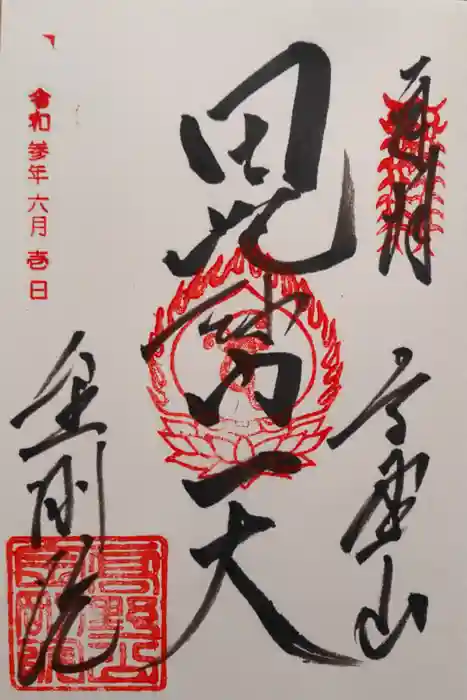 奉拝
高野山
毘沙門天
金剛院
令和参年六月壱日